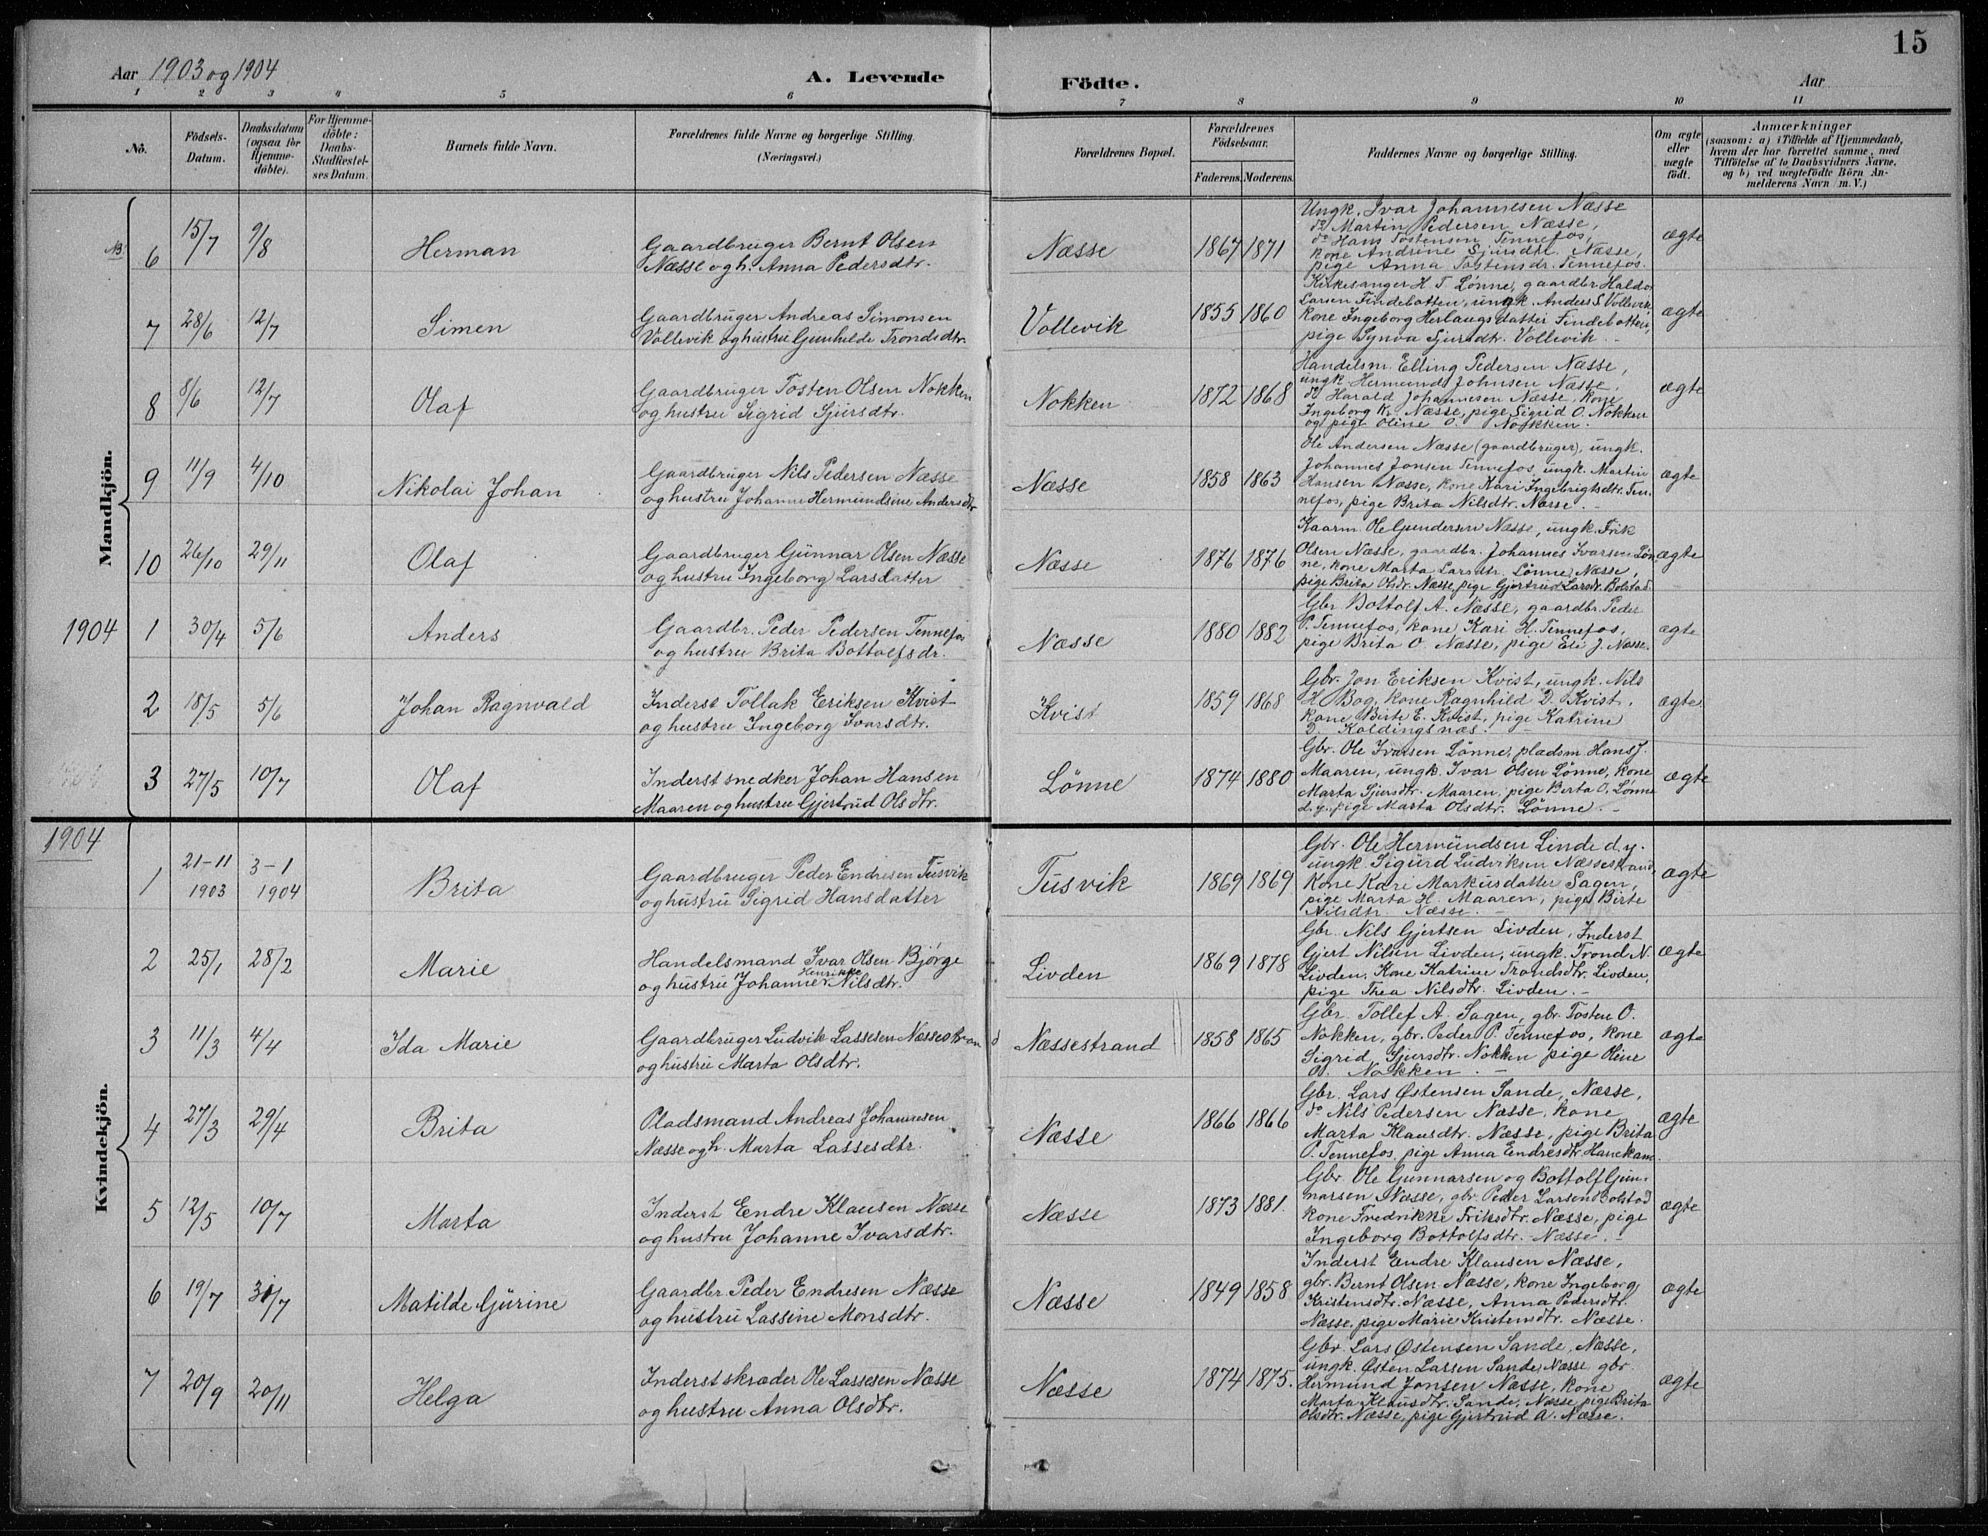 15
Aar 1903 og 1904
A. Levende Födte.
Aar
1 2 3 4 5 6 7 8 9 10 11
No.
Födsels-Datum.
Daabsdatum (ogsaa för Hjemmedöbte).
For Hjemmedöbte: Daabs-Stadfæstelses Datum.
Barnets fulde Navn.
Forældrenes fulde Navne og borgerlige Stilling. (Næringsvei.)
Forældrenes Bopæl.
Forældrenes Födselsaar.
Faderens. Moderens.
Faddernes Navne og borgerlige Stilling.
Om ægte eller uægte födt.
Anmærkninger
(saasom: a) i Tilfælde af Hjemmedaab, hvem der har forrettet samme, med Tilföielse af to Daabsvidners Navne, og b) ved uægtefödte Börn Anmelderens Navn m. V.)
Mandkjön.
6 15/7 9/8 Herman
Gaardbruger Bernt Olsen
Næsse og h. Anna Pedersdtr.
Næsse 1867 1871
Ungk. Ivar Johannesen Næsse
do Martin Pedersen Næsse,
do Hans Tostensen Tennefos,
kone Andrine Sjursdtr. Næsse,
pige Anna Tostensdr. Tennefos.
ægte
7 28/6 12/7 Simen
Gaardbruger Andreas Simonsen
Vollevik og hustru Gunhilde Trondsdtr.
Vollevik 1855 1860
Kirkesanger H. T. Lønne, gaardbr. Haldo
Larsen Findebotten, ungk. Anders S. Vollevik
kone Ingeborg Herlaugsdatter Findebotten,
pige Synva Sjursdtr. Vollevik.
ægte
8 8/6 12/7 Olaf
Gaardbruger Tosten Olsen Nokken
og hustru Sigrid Sjursdtr.
Nokken 1872 1868
Handelsm. Elling Pedersen Næsse,
ungk. Hermund Johnsen Næsse,
do Harald Johannesen Næsse, kone
Ingeborg K. Næsse, pige Sigrid O. Nokken
og pige Oline O. Nokken.
ægte
9 11/9 4/10 Nikolai Johan
Gaardbruger Nils Pedersen Næsse
og hustru Johanne Hermundsine Andersdtr
Næsse 1858 1863
Ole Andersen Næsse (gaardbruger), ungk.
Johannes Jonsen Tennefos, ungk. Martin
Hansen Næsse, kone Kari Ingebrigtsdtr. Ten-
nefos, pige Brita Nilsdtr. Næsse.
ægte
10 26/10 29/11 Olaf
Gaardbruger Gunnar Olsen Næsse
og hustru Ingeborg Larsdatter
Næsse 1876 1876
Kaarm. Ole Gundersen Næsse, ungk. Erik
Olsen Næsse, gaardbr. Johannes Ivarsen Løn-
ne, kone Marta Larsdtr. Lønne, Næsse,
pige Brita Olsdr. Næsse, pige Gjertrud Larsdr. Bolstad.
ægte
1904
1 30/4 5/6 Anders
Gaardbr. Peder Pedersen Tennefos
og hustru Brita Bottolfsdr.
Næsse 1880 1882
Gbr. Bottolf A. Næsse, gaardbr. Peder
P. Tennefos, kone Kari H. Tennefos,
pige Brita O. Næsse, pige Eli J. Næsse.
ægte
2 18/5 5/6 Johan Ragnvald
Inderst Tollak Eriksen Kvist
og hustru Ingeborg Ivarsdtr.
Kvist 1859 1868
Gbr. Jon Eriksen Kvist, ungk. Nils
H. Bog, kone Ragnhild D. Kvist,
kone Birte E. Kvist, pige Katrine
D. Koldingsnæs.
ægte
3 27/5 10/7 Olaf
Inderst snedker Johan Hansen
Maaren og hustru Gjertrud Olsdtr.
Lønne 1874 1880
Gbr. Ole Ivarsen Lønne, pladsm. Hans J.
Maaren, ungk. Ivar Olsen Lønne, kone
Marta Sjursdtr. Maaren, pige Berta O. Lønne
d. y. pige Marta Olsdtr. Lønne.
ægte
Kvindekjön.
1904
1 21-11 1903 3-1 1904 Brita
Gaardbruger Peder Endresen Tusvik
og hustru Sigrid Hansdatter
Tusvik 1869 1869
Gbr. Ole Hermundsen Linde d.y.
ungk. Sigurd Ludviksen Næssestrand,
kone Kari Markusdatter Sagen,
pige Marta H. Maaren, pige Birte
Nilsdtr. Næsse.
ægte
2 25/1 28/2 Marie
Handelsmand Ivar Olsen Bjørge
og hustru Johanne Henrikke Nilsdtr.
Livden 1869 1878
Gbr. Nils Gjertsen Livden, Inderst
Gjert Nilsen Livden, ungk. Trond N.
Livden, kone Katrine Trondsdtr. Livden,
pige Thea Nilsdtr. Livden.
ægte
3 11/3 4/4 Ida Marie
Gaardbruger Ludvik Lassesen Næssestran
d
og hustru Marta Olsdtr.
Næssestrand 1858 1865
Gbr. Tollef A. Sagen, gbr. Tosten O.
Nokken, gbr. Peder P. Tennefos, kone
Sigrid Sjursdtr. Nokken pige Oline
O. Nokken.
ægte
4 27/3 29/4 Brita
Pladsmand Andreas Johannesen
Næsse og h. Marta Lassesdtr.
Næsse 1866 1866
Gbr. Lars Østensen Sande, Næsse,
do Nils Pedersen Næsse, kone
Marta Klausdtr. Næsse, pige Brita
P. Tennefos, pige Anna Endresdtr. Hanekam
ægte
5 12/5 10/7 Marta
Inderst Endre Klausen Næsse
og hustru Johanne Ivarsdtr.
Næsse 1873 1881.
Gbr. Ole Gunnarsen og Bottolf Gun-
narsen Næsse, gbr. Peder Larsen Bolstad
kone Fredrikke Eriksdtr. Næsse, pige
Ingeborg Bottolfsdtr. Næsse.
ægte
6 19/7 31/7 Matilde Gurine
Gaardbr. Peder Endresen Næsse
og hustru Lassine Monsdtr.
Næsse 1849 1858
Inderst Endre Klausen Næsse,
gbr. Bernt Olsen Næsse, kone Ingeborg
Kristensdtr. Næsse, Anna Pedersdtr.
Næsse, pige Marie Kristensdtr. Næsse.
ægte
7 20/9 20/11 Helga
Inderst skræder Ole Lassesen Næsse
og hustru Anna Olsdtr.
Næsse 1874 1875.
Gbr. Lars Østensen Sande, Næsse,
ungk. Østen Larsen Sande, Næsse gbr.
Hermund Jonsen Næsse, kone
Marta Klausdtr. Sande, Næsse, pige Brita
Olsdtr. Næsse, pige Gjertrud A. Næsse.
ægte